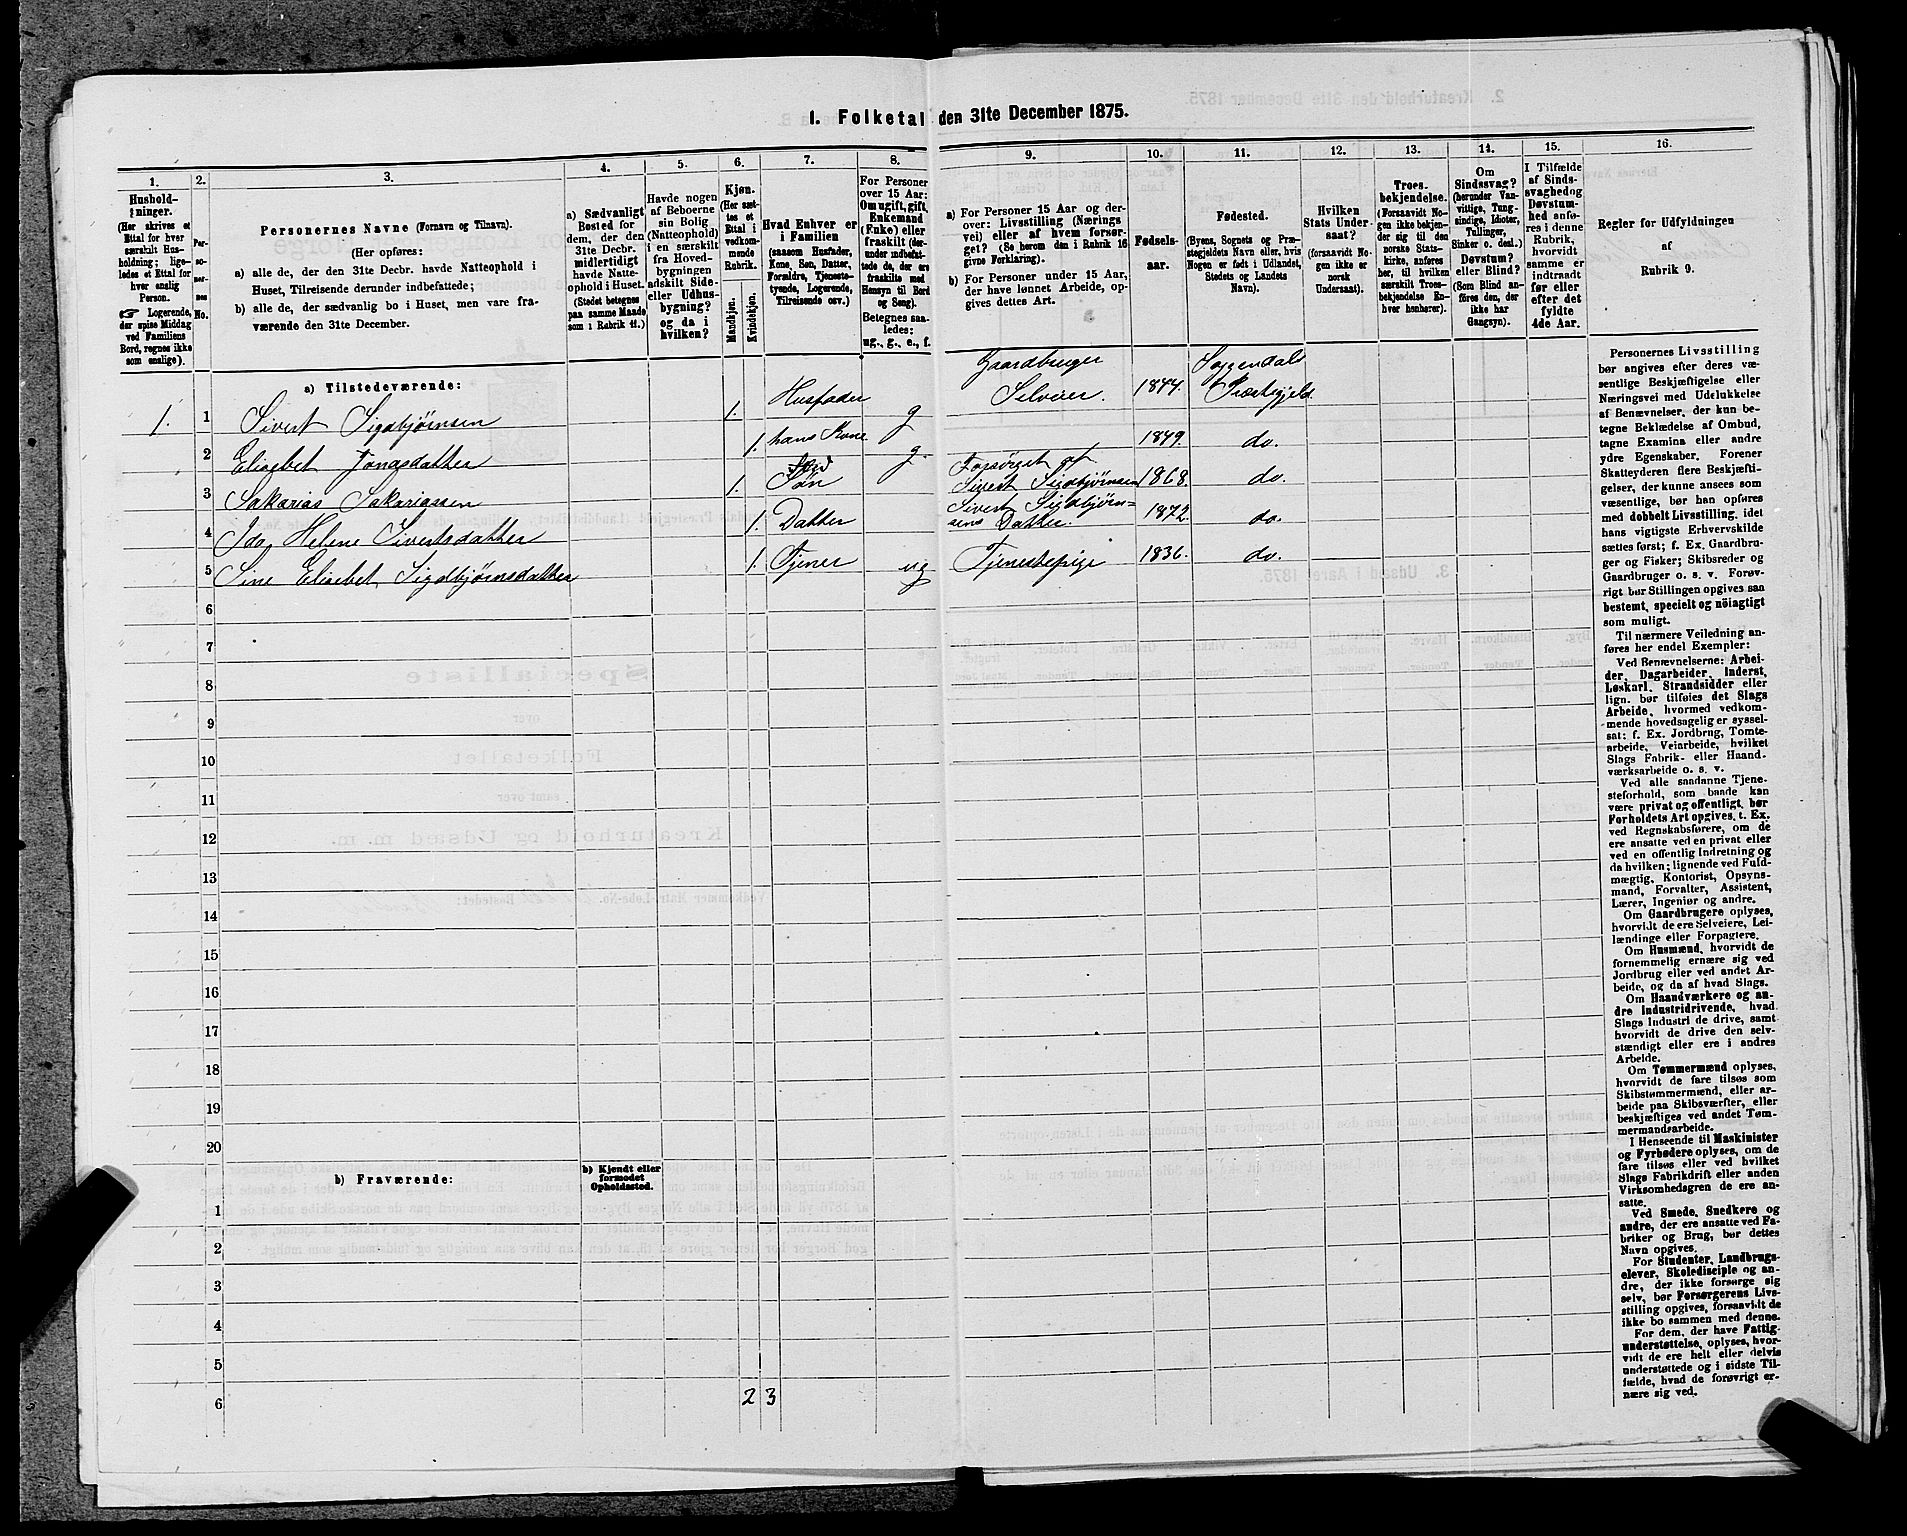 1. Folketal den 31te December 1875.
1.
Hushold-
ninger.
(Her skrives et
Ettal for hver
særskilt Hus-
holdning; lige-
ledes et Ettal for
hver enslig
Person.
☞ Logerende,
der spise Middag
ved Familiens
Bord, regnes ikke
som enslige).
2.
Per-
so-
ner-
nes
No.
3.
Personernes Navne (Fornavn og Tilnavn).
(Her opføres:
a) alle de, der den 31te Decbr. havde Natteophold i
Huset, Tilreisende derunder indbefattede;
b) alle de, der sædvanlig bo i Huset, men vare fra-
værende den 31te December.
4.
a) Sædvanligt
Bosted for
dem, der den
31te Decbr.
midlertidigt
havde Natte-
ophold i Huset.
(Stedet betegnes
paa samme Maade
som i Rubrik 11.)
5.
Havde nogen
af Beboerne
sin Bolig
(Natteophold)
i en særskilt
fra Hoved-
bygningen
adskilt Side-
eller Udhus-
bygning?
og da i
hvilken?
6.
Kjøn.
(Her sæt-
tes et
Ettal i
vedkom-
mende
Rubrik.
Mandkjøn.
Kvindekjøn.
7.
Hvad Enhver er
i Familien
(saasom Husfader,
Kone, Søn, Datter,
Forældre, Tjeneste-
tyende, Logerende,
Tilreisende osv.)
8.
For Personer
over 15 Aar:
Om ugift, gift,
Enkemand
(Enke) eller
fraskilt (der-
under indbefat-
tede de, der ere
fraskilte med
Hensyn til Bord
og Seng).
Betegnes saa-
ledes:
ug., g., e., f.
9.
a) For Personer 15 Aar og der-
over: Livsstilling (Nærings
vei) eller af hvem forsør-
get? (Se herom den i Rubrik 16
givne Forklaring).
b) For Personer under 15 Aar,
der have lønnet Arbeide, op-
gives dettes Art.
10.
Fødsels-
aar.
11.
Fødested.
(Byens, Sognets og Præ-
stegjeldets Navn eller, hvis
Nogen er født i Udlandet,
Stedets og Landets
Navn).
12.
Hvilken
Stats Under-
saat?
(forsaavidt No-
gen ikke er
norsk
Undersaat).
13.
Troes-
bekjendelse.
(Forsaavidt No-
gen ikke bekjen-
der sig til den
norske Stats-
kirke, anføres
her, til hvilken
særskilt Troes-
bekjendelse En-
hver henhører).
14.
Om
Sindssvag?
(herunder Van-
vittige, Tung-
sindige, Idioter,
Tullinger,
Sinker o. desl.)
Døvstum?
eller Blind?
(Som Blind an-
føres den, der
ikke har
Gangsyn).
15.
I Tilfælde
af Sinds-
svaghedog
Døvstum-
hed anfø-
res i denne
Rubrik,
hvorvidt
samme er
indtraadt
før eller
efter det
fyldte
4de Aar.
16.
Regler for Udfyldningen
af
Rubrik 9.
a) Tilstedeværende:
1. 1 Sivert Sigbjørnsen 1. Husfader g Gaardbruger Selveier. 1844. Soggendals Præstegjeld.
2 Elisebet Jonasdatter 1. hans Kone g. 1849. do.
3 Sakarias Sakariassen 1. Søn Forsørget af Sivert Sigbjørnsen 1868. do.
4 Ida Helene Sivertsdatter 1. Datter Sivert Sigbjørn-sens Datter. 1872. do.
5 Sine Elisebet Sigbjørnsdatter 1. Tjener ug Tjenestepige 1836. do.
6
7
8
9
10
11
12
13
14
15
16
17
18
19
20
b) Fraværende:
b) Kjendt eller
formodet
Opholdssted.
1
2
3
4
5
6
2 3
Personernes Livsstilling
bør angives efter deres væ-
sentlige Beskjæftigelse eller
Næringsvei med Udelukkelse
af Benævnelser, der kun be-
tegne Beklædelse af Ombud,
tagne Examina eller andre
ydre Egenskaber. Forener
Skatteyderen flere Beskjæfti-
gelser, der kunne ansees som
væsentlige, bør han opføres
med dobbelt Livsstilling, idet
hans vigtigste Erhvervskilde
sættes først; f. Ex. Gaardbru-
ger og Fisker; Skibsreder og
Gaardbruger o. s. v. Forøv-
rigt bør Stillingen opgives saa
bestemt, specielt og nöiagtigt
som muligt.
Til nærmere Veiledning an-
føres her endel Exempler:
Ved Benævnelserne: Arbei-
der, Dagarbeider, Inderst,
Løskarl, Strandsidder eller
lign. bør tilføies det Slags
Arbeide, hvormed vedkom-
mende hovedsagelig er syssel-
sat; f. Ex. Jordbrug, Tomte-
arbeide, Veiarbeide, hvilket
Slags Fabrik- eller Haand-
værksarbeide o. s. v.
Ved alle saadanne Tjene-
steforhold, som baade kan
være privat og offentligt, bør
Forholdets Art opgives, t. Ex.
ved Regnskabsførere, om de
ere ansatte ved en privat eller
ved en offentlig Indretning og
da hvilken; lignende ved Fuld-
mægtig, Kontorist, Opsyns-
mand, Forvalter, Assistent,
Lærer, Ingeniør og andre.
Om Gaardbrugere oplyses,
hvorvidt de ere Selveiere, Lei-
lændinge eller Forpagtere.
Om Husmænd, hvorvidt de
fornemmelig ernære sig ved
Jordbrug eller ved andet Ar-
beide, og da af hvad Slags.
Om Haandværkere og an-
dre Industridrivende, hvad
Slags Industri de drive, samt
hvorvidt de drive den selv-
stændigt eller ere i andres
Arbeide.
Om Tømmermænd oplyses,
hvorvidt de fare tilsøs som
Skibstømmermænd, eller ar-
beide paa Skibsværfter, eller
beskjæftiges ved andet Tøm-
mermandsarbeide.
I Henseende til Maskinister
og Fyrbødere oplyses, om de
fare tilsøs eller ved hvilket
Slags Fabrikdrift eller anden
Virksomhedsgren de ere an-
satte.
Ved Smede, Snedkere og
andre, der ere ansatte ved Fa-
briker og Brug, bør dettes
Navn opgives.
For Studenter, Landbrugs-
elever, Skoledisciple og an-
dre, der ikke forsørge sig
selv, bør Forsørgerens Livs-
stilling opgives, forsaavidt de
ikke bo sammen med denne.
For dem, der have Fattig-
understøttelse, oplyses, hvor-
vidt de ere helt eller delvis
understøttede og i sidste Til-
fælde, hvad de forøvrigt er-
nære sig ved.